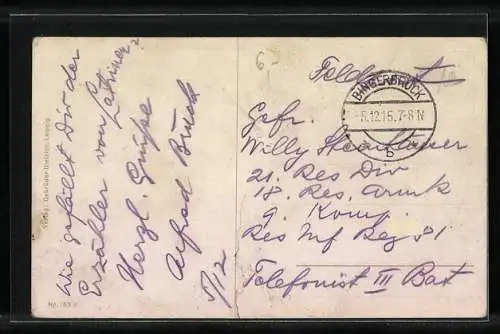 Wie gefällt Dir der
Erzähler vom Latrine?
Herzl. Grüße
Alfred Bruck
5/12
Verlag: Gebrüder Dietrich, Leipzig
Nr. 163
6.-
Feldpost
BINGERBRÜCK
-5.12.15. 7-8 N
b
Gefr.
Willy
21. Res Div
18. Res. Armk
9. Komp.
Res Inf Reg 81
Telefonist III Bat